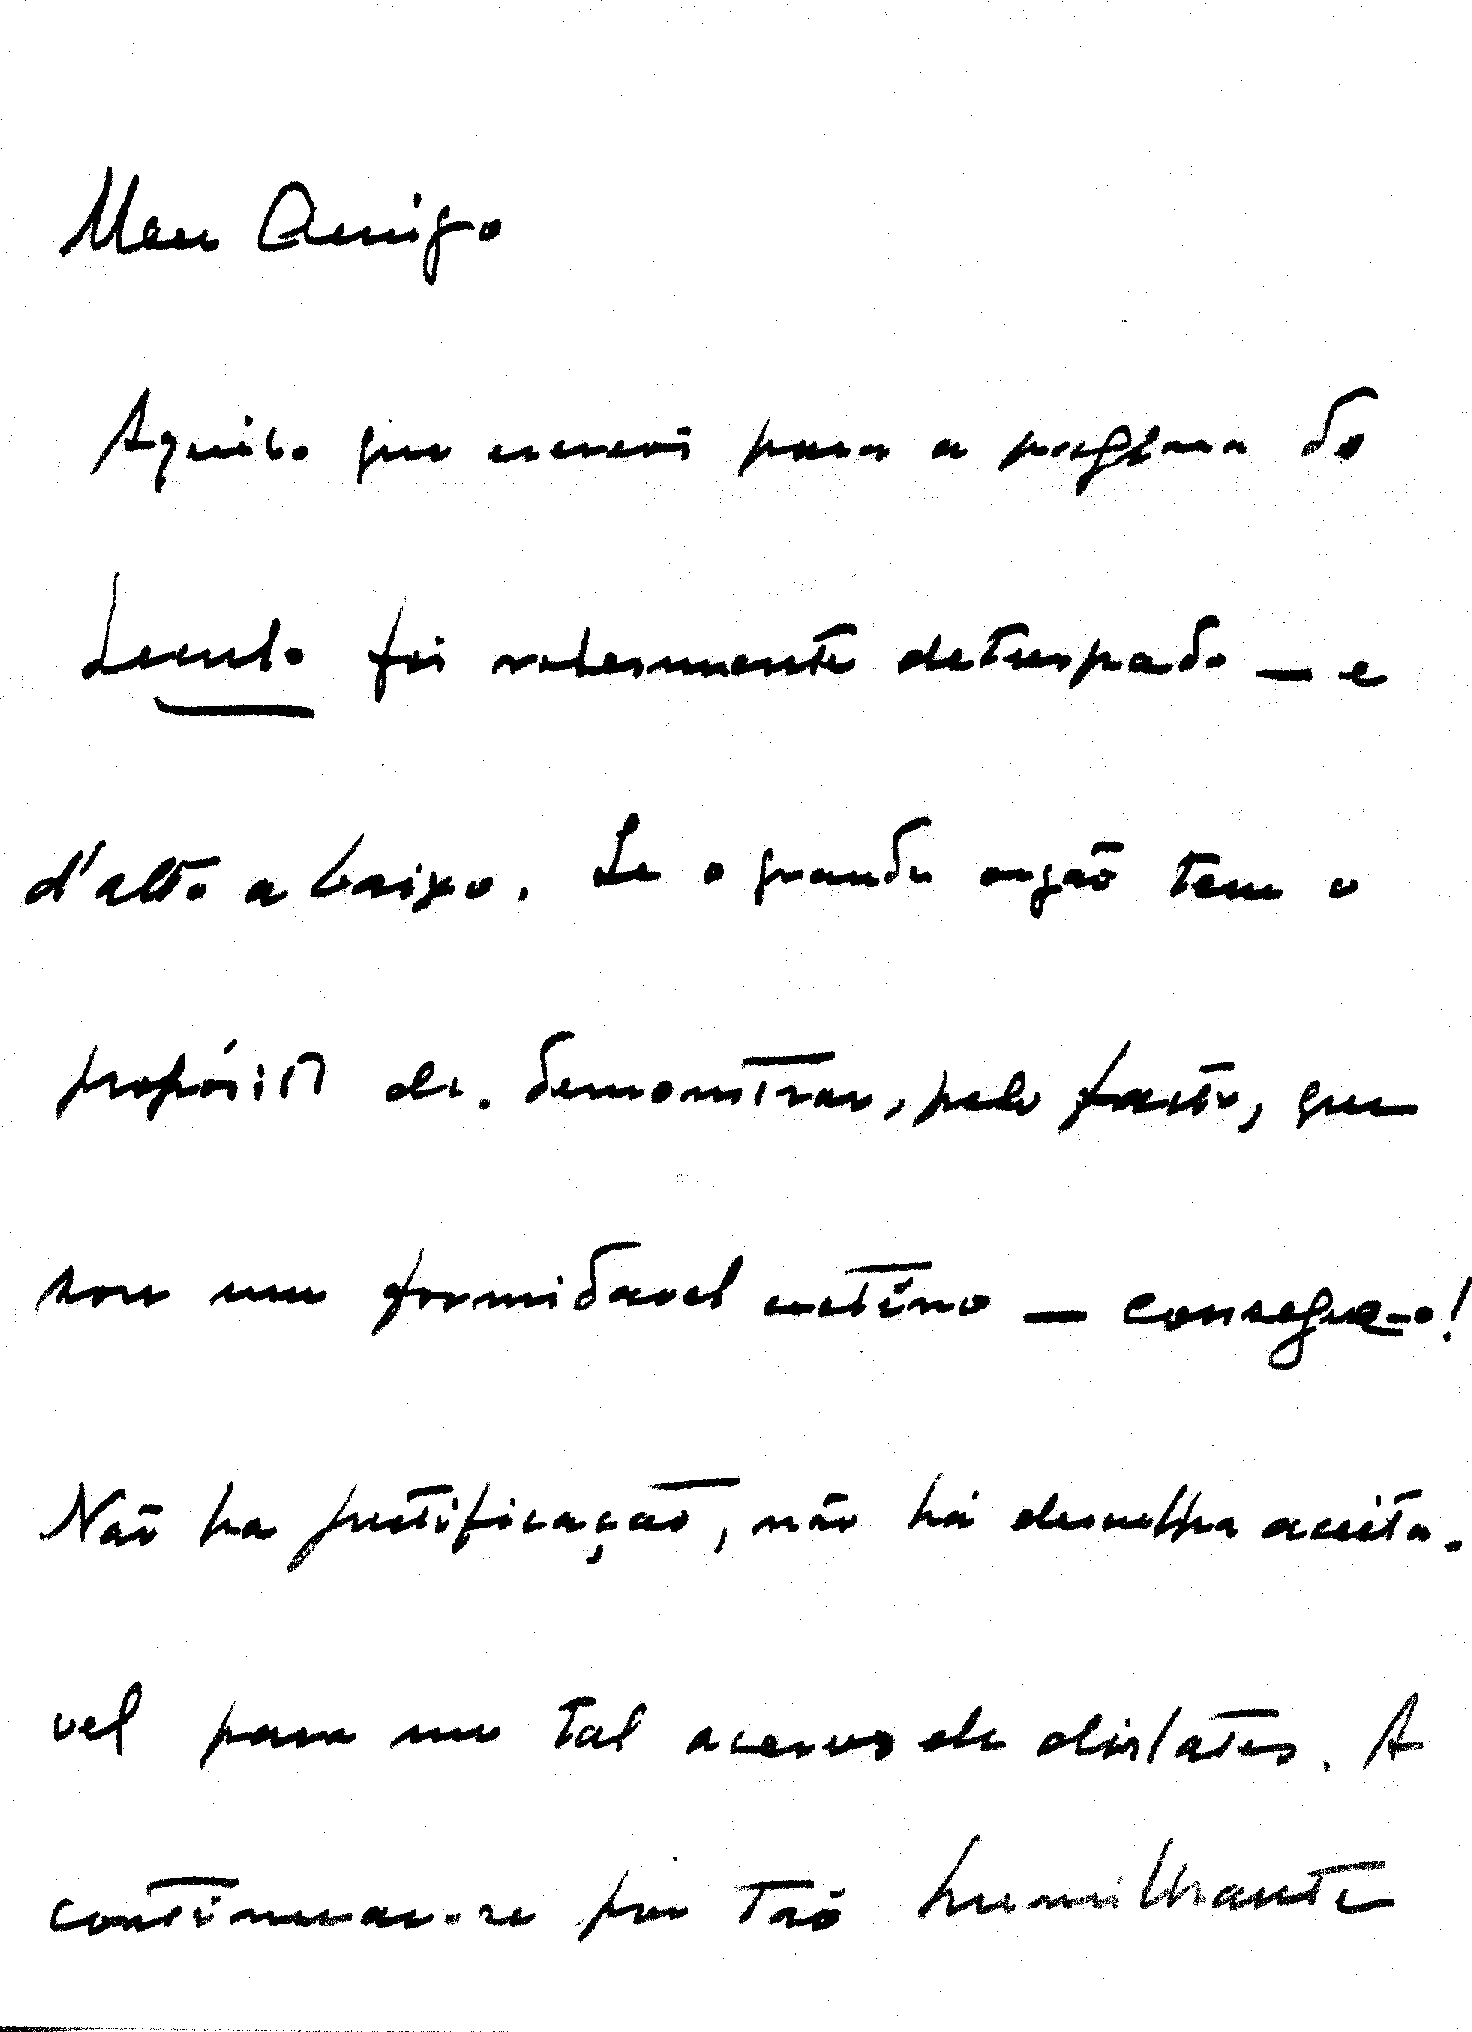 Meu Amigo
Aquilo que escrevi para a pagina do
Seculo foi nobremente detrupado — e
d'alto a baixo. Se o grande orgão tem o
propósito de. demonstrar, pelo facto, que
sou um formidavel cretino — consegue-o!
Não ha justificação, não há desculpa aceita-
vel para um tal acervo de dislates. A
continuar-se por tão humilhante